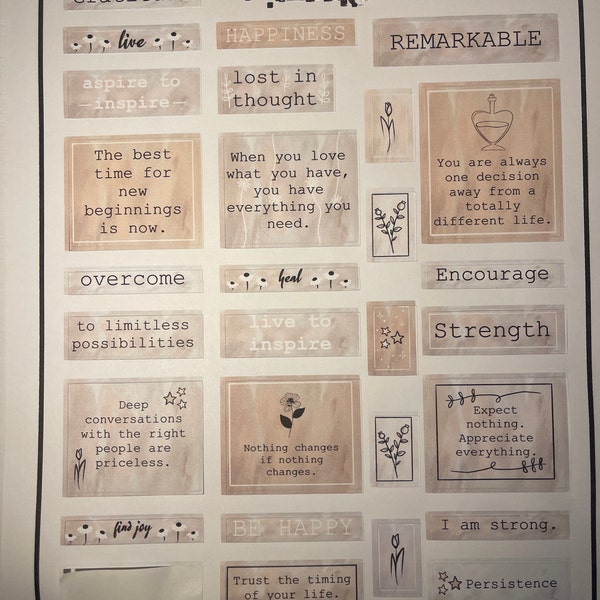 Gratitude
live
HAPPINESS
REMARKABLE
aspire to
—inspire—
lost in
thought
The best
time for
new
beginnings
is now.
When you love
what you have,
you have
everything you
need.
You are always
one decision
away from a
totally
different life.
overcome
heal
Encourage
to limitless
possibilities
live to
inspire
Strength
Deep
conversations
with the right
people are
priceless.
Nothing changes
if nothing
changes.
Expect
nothing.
Appreciate
everything.
find joy
BE HAPPY
I am strong.
Trust the timing
of your life.
Persistence